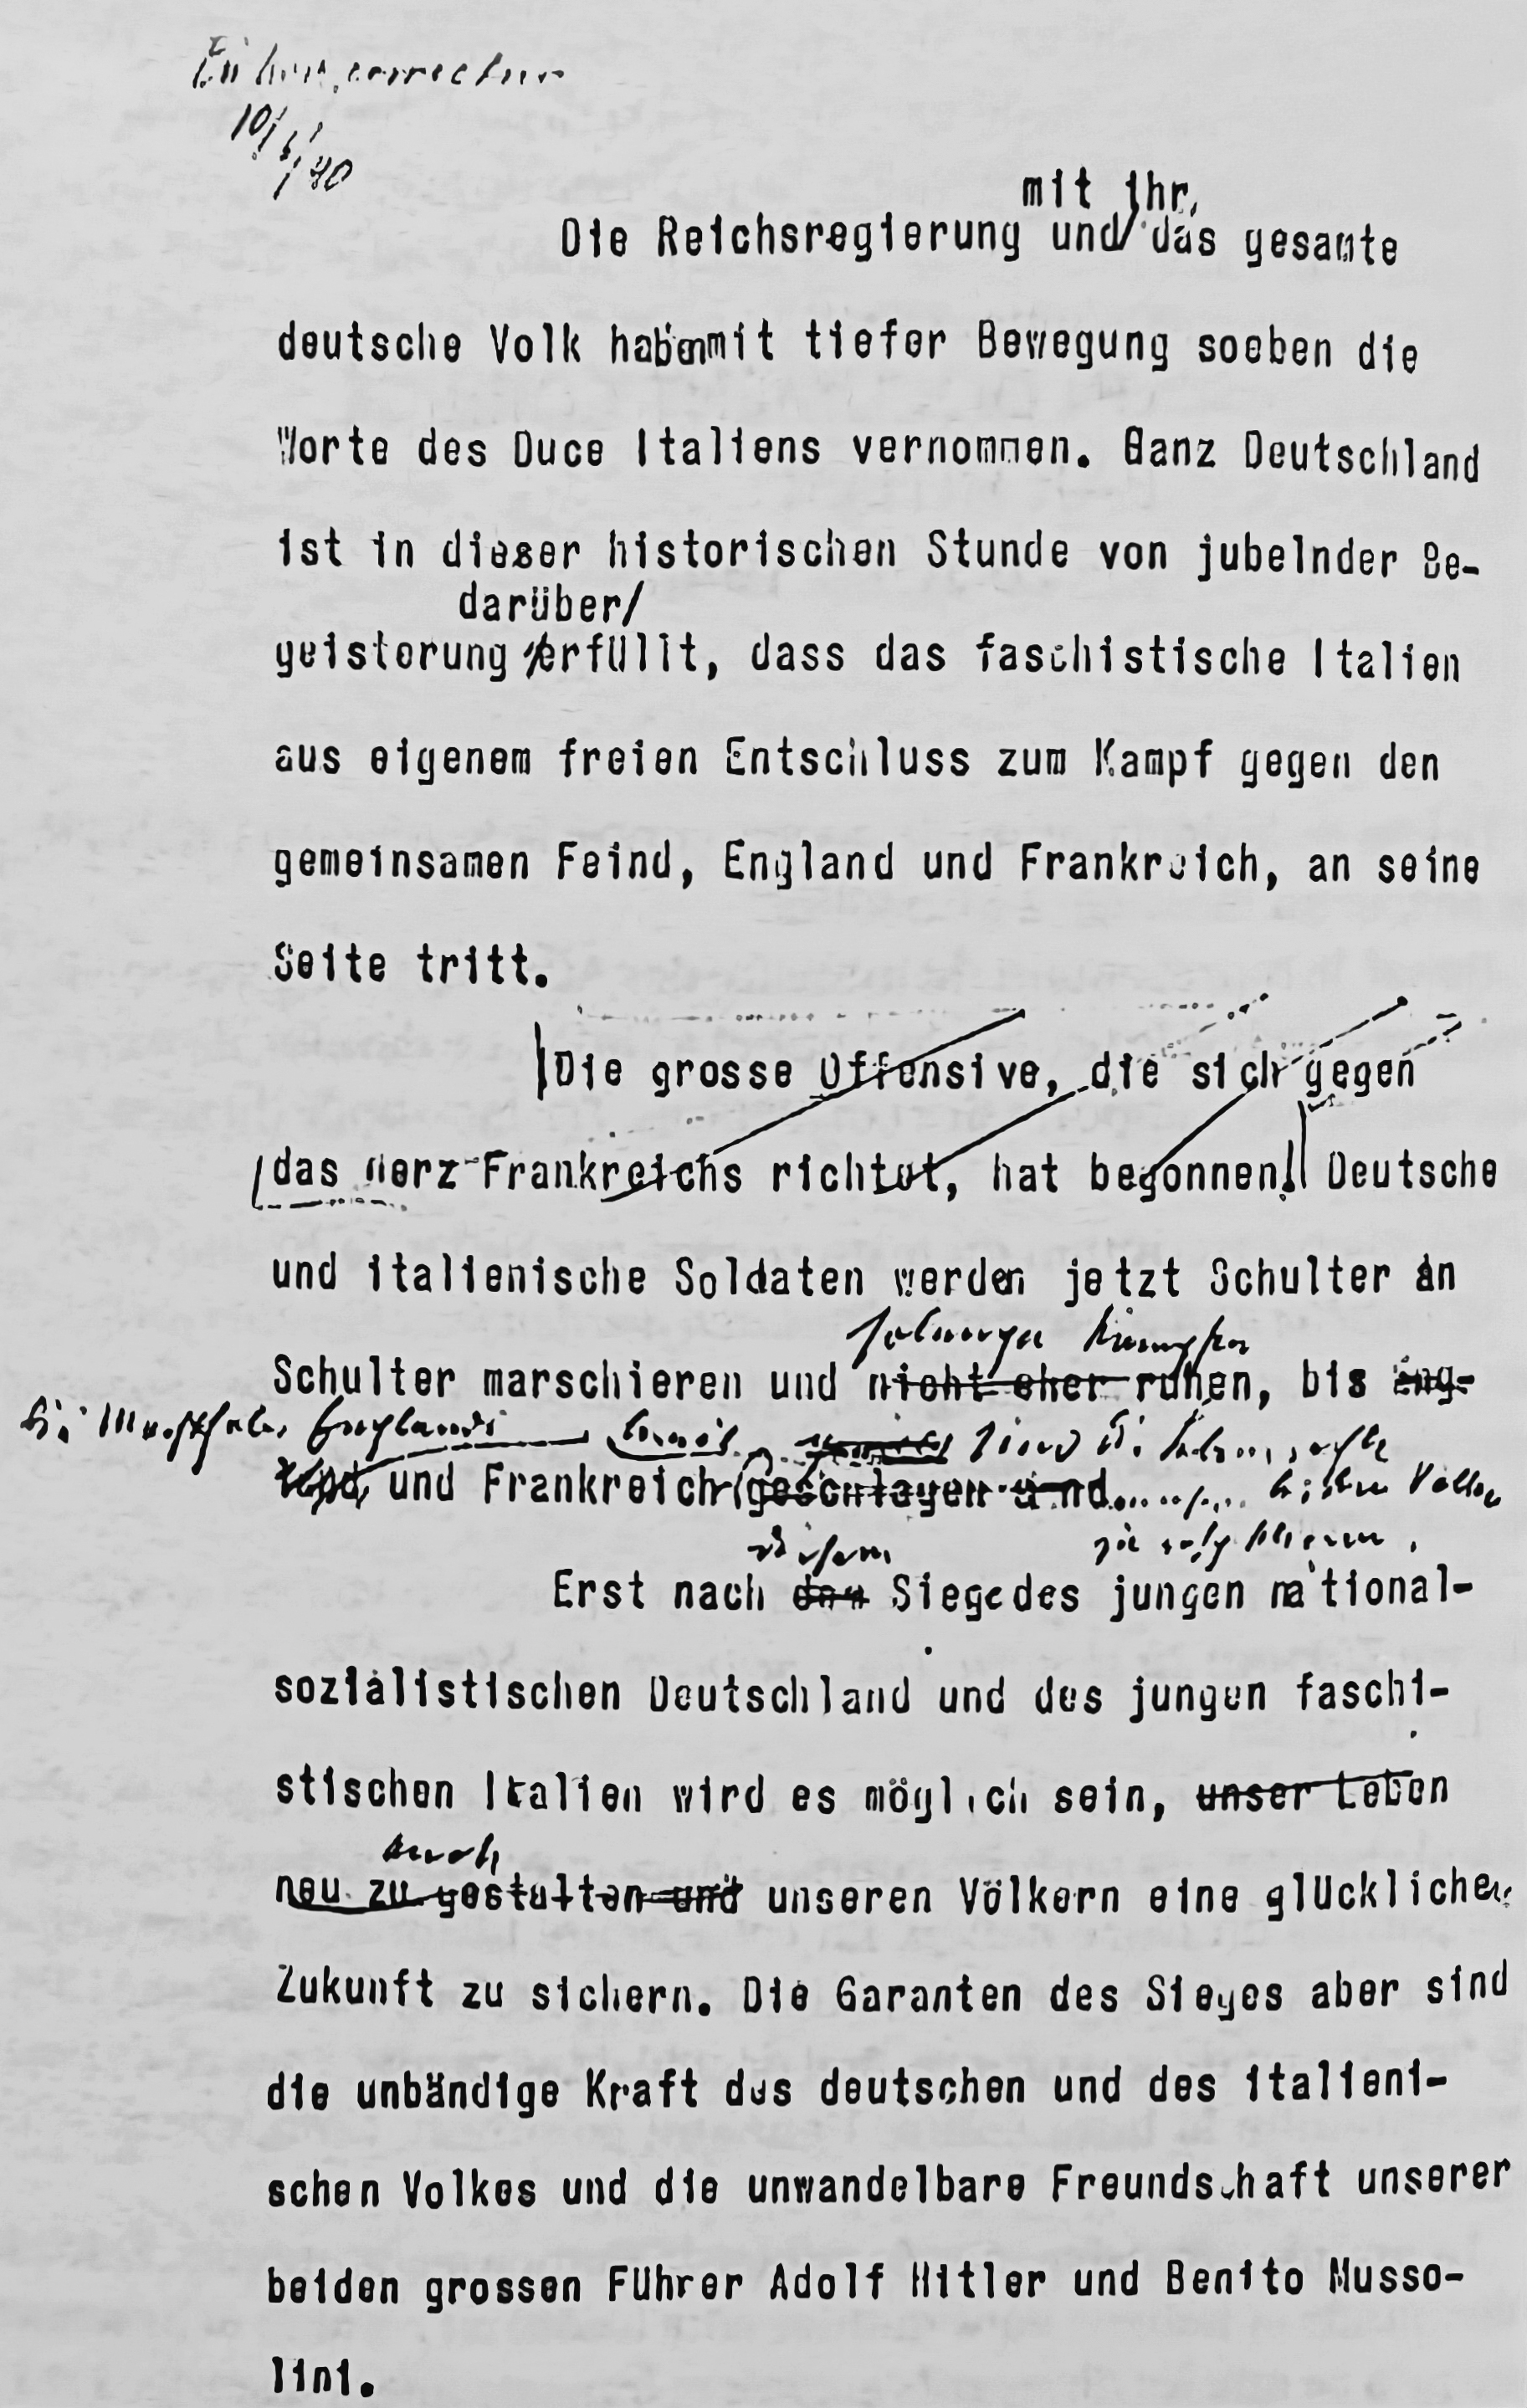 10/6/40
mit ihr,
Die Reichsregierung und/ das gesamte
deutsche Volk haben mit tiefer Bewegung soeben die
Worte des Duce Italiens vernommen. Ganz Deutschland
ist in dieser historischen Stunde von jubelnder Be-
darüber/
geisterung erfüllt, dass das faschistische Italien
aus eigenem freien Entschluss zum Kampf gegen den
gemeinsamen Feind, England und Frankreich, an seine
Seite tritt.
Die grosse Offensive, die sich gegen
das Herz Frankreichs richtet, hat begonnen! Deutsche
und italienische Soldaten werden jetzt Schulter an
solange kämpfen
Schulter marschieren und nicht eher ruhen, bis Eng-
die Machthaber Englands bereit sind die
land und Frankreich geschlagen sind beider Völker
zu
Erst nach dem Siege des jungen national-
sozialistischen Deutschland und des jungen faschi-
stischen Italien wird es möglich sein, unser Leben
auch
neu zu gestalten und unseren Völkern eine glückliche
Zukunft zu sichern. Die Garanten des Sieges aber sind
die unbändige Kraft des deutschen und des italieni-
schen Volkes und die unwandelbare Freundschaft unserer
beiden grossen Führer Adolf Hitler und Benito Musso-
lini.